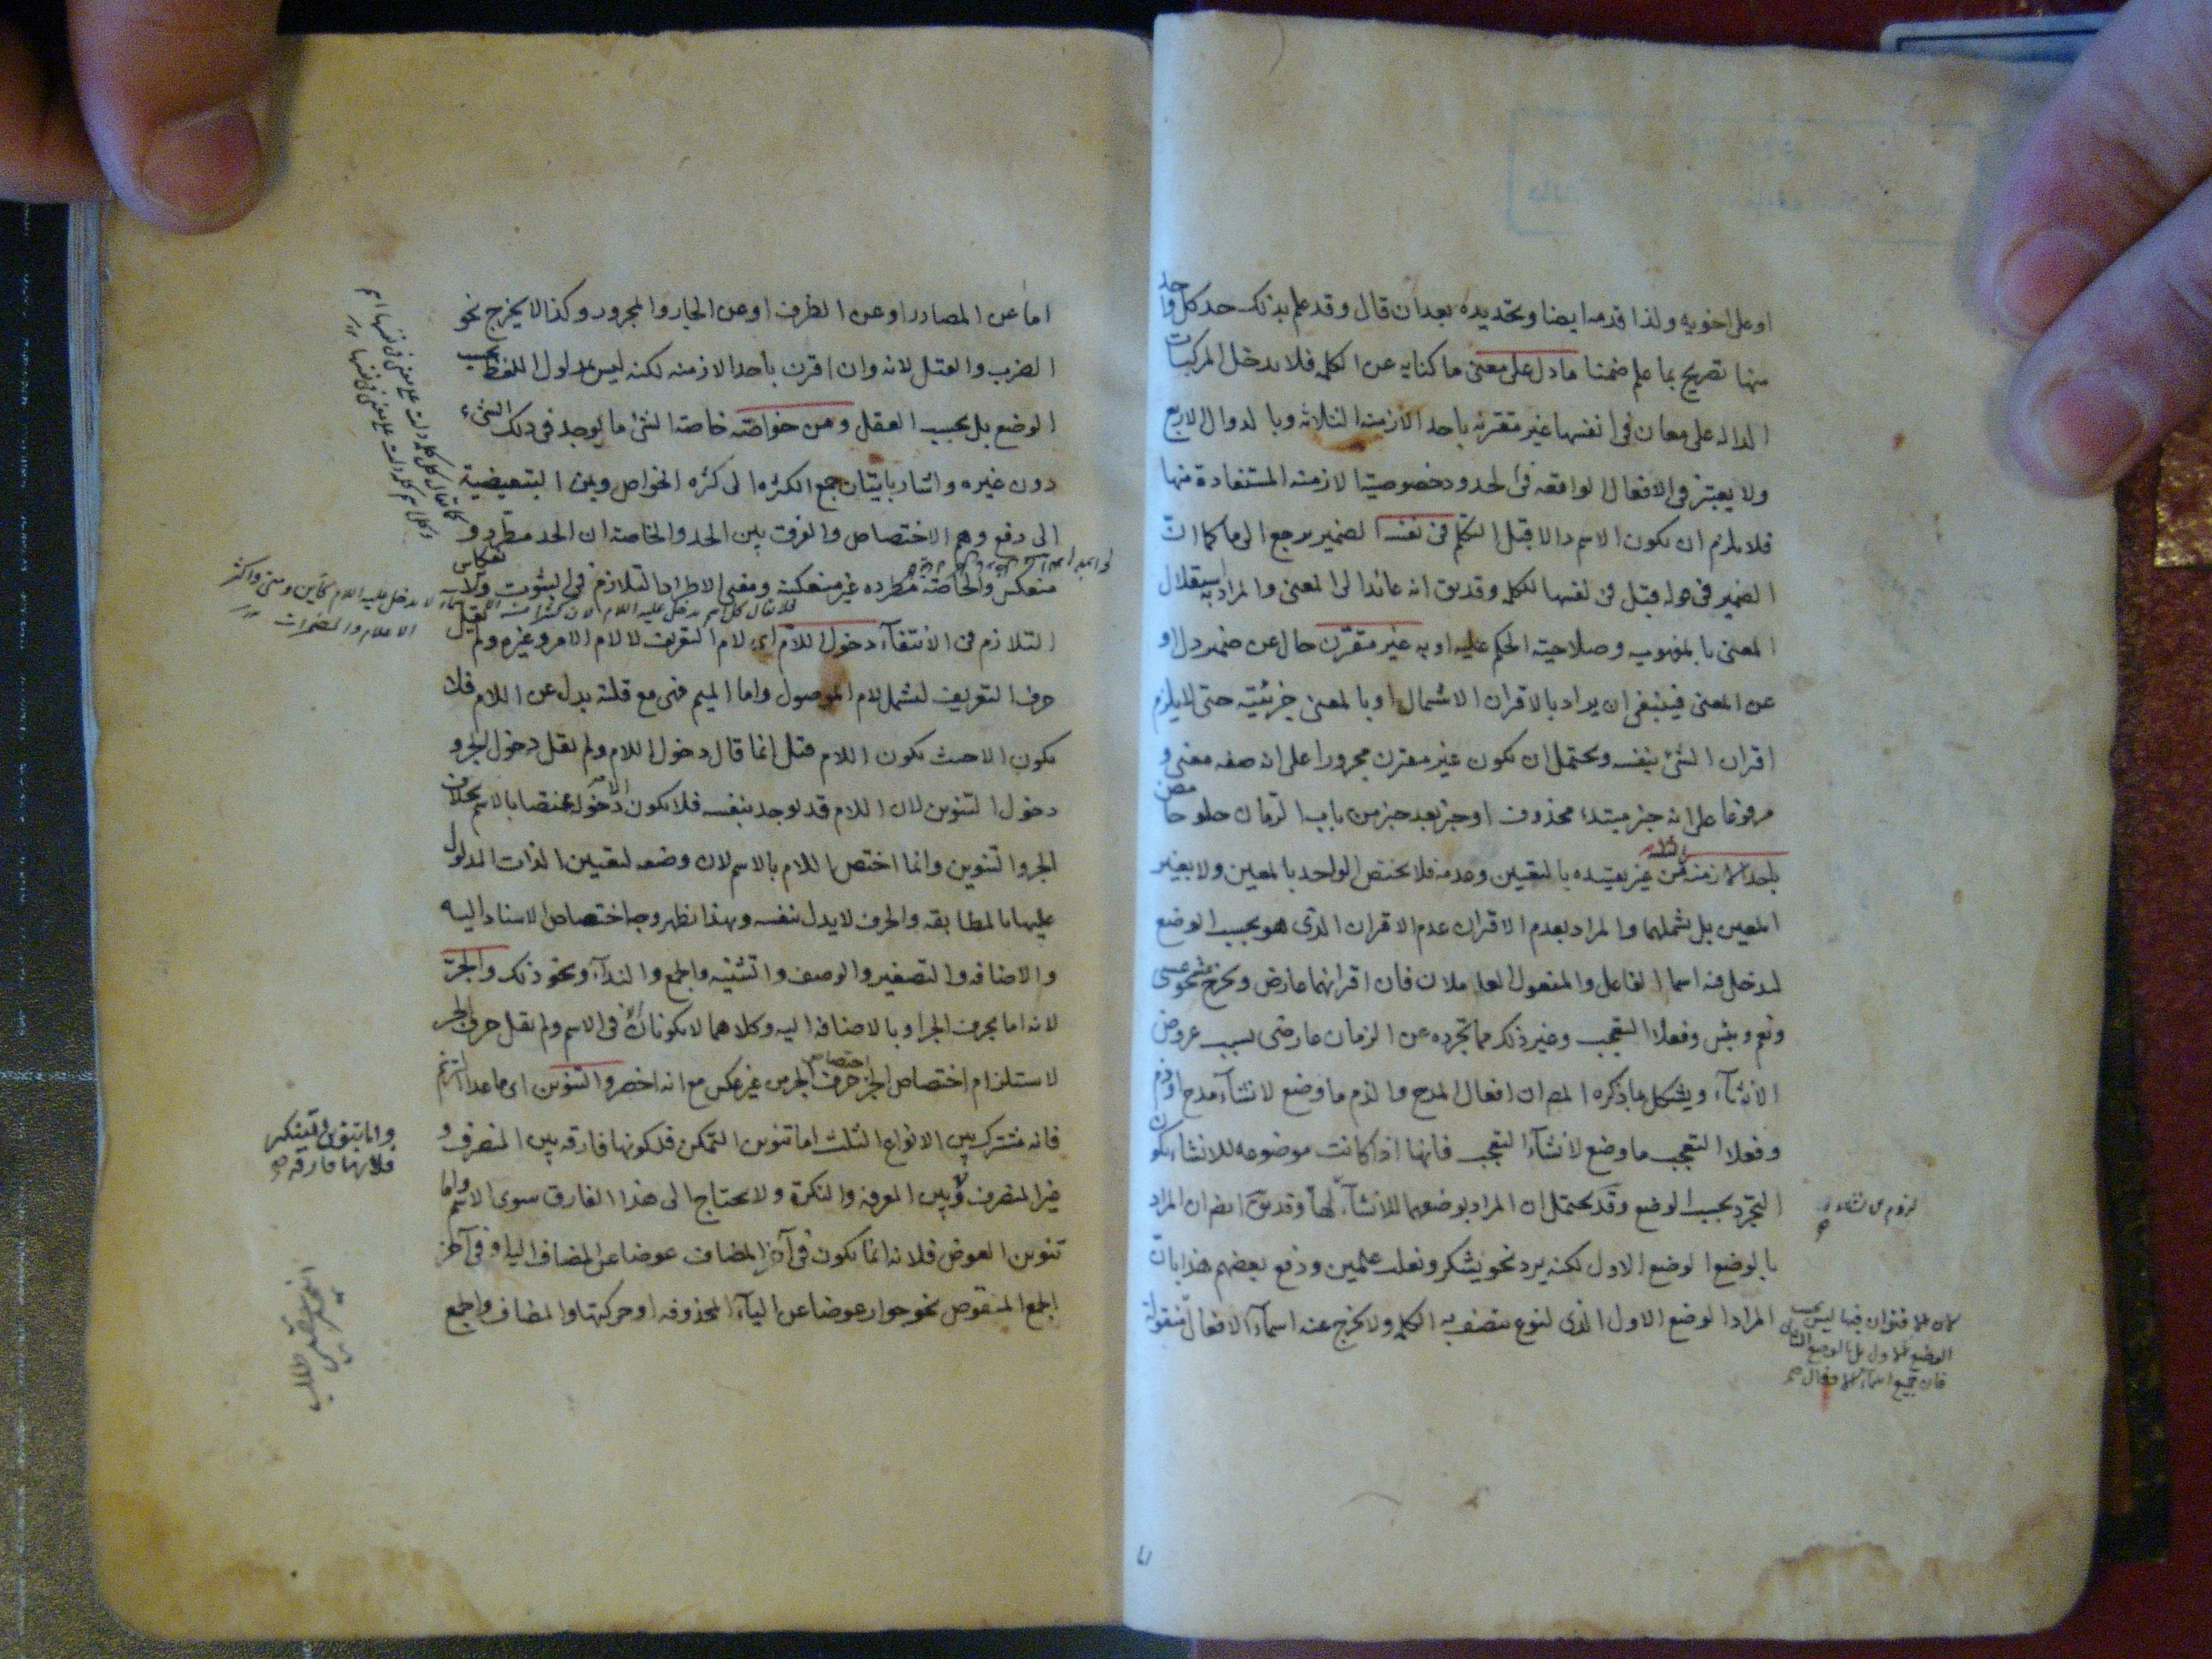 او على اخويه ولذا قدمه ايضا وتحديده بعد ان قال وقد علم بذلك حد كل واحد
منها تصريح بما علم ضمنا ما دل على معنى ما كناية عن الكلمة فلا يدخل المركبات
الدالة على معان في انفسها غير مقترنة باحد الازمنة الثلاثة وبا لدوال الاربع
ولا يعتبر في الافعال الواقعة في الحدود خصوصية الازمنة المستفادة منها
فلا يلزم ان يكون الاسم دالا قبل التكلم في نفسه الضمير يرجع الى ما كما ان
الضمير في قوله قبل في نفسها للكلمة وقد يق انه عائد الى المعنى والمراد به استقلال
المعنى بالمفهومية وصلاحيته الحكم عليه او به غير مقترن حال عن ضمير دل او
عن المعنى فينبغي ان يراد بالاقتران الاشتمال او بالمعنى جزئيته حتى لا يلزم
اقتران الشئ بنفسه ويحتمل ان يكون غير مقترن مجرورا على انه صفة معنى و
مرفوعا على انه خبر مبتدء محذوف او خبر بعد خبر من باب الرمان حلو حامض
باحد الازمنة الثلثة من غير تقييده بالتعيين وعدمه فلا يختص الواحد بالمعين ولا بغير
المعين بل يشملهما والمراد بعدم الاقتران عدم الاقتران الذى هو بحسب الوضع
ليدخل فيه اسما الفاعل والمفعول العاملان فان اقترانهما عارض ويخرج عنه نحو عسى
ونعم وبئس وفعلا التعجب وغير ذلك مما تجرده عن الزمان عارضى بسبب عروض
الانشاء ويشكل ما ذكره المص ان افعال المدح والذم ما وضع لانشاء مدح او ذم
وفعلا التعجب ما وضع لانشاء التعجب فانها اذا كانت موضوعه للانشاء يكون
التجرد بحسب الوضع وقد يحتمل ان المراد بوضعهما للانشاء وقد يق ايضا ان المراد
بالوضع الوضع الاول لكنه يرد نحو يشكر وتغلب علمين ودفع بعضهم هذا بان
المراد الوضع الاول الذى لنوع تتصف به الكلمة ولا يخرج عنه اسماء الافعال منقولة
الوضع الاول بل بالوضع الثانى
فان جميع اسماء الافعال صح
اما عن المصادر او عن الظرف او عن الجار والمجرور وكذا لا يخرج نحو
الضرب والقتل لانه وان اقترن باحد الازمنة لكنه ليس بمدلول اللفظ بحسب
الوضع بل بحسب العقل ومن خواصه خاصة الشئ ما يوجد في ذلك الشئ
دون غيره واشار باتيان جمع الكثرة الى كثرة الخواص وبمن التبعيضية
الى دفع وهم الاختصاص والفرق بين الحد والخاصة ان الحد مطرد و
منعكس والخاصة مطردة غير منعكسة ومعنى الاطراد التلازم في الثبوت والانعكاس
التلازم في الانتفاء دخول اللام اى لام التعريف لا لام الامر وغيره ولم يقل
حرف التعريف ليشمل لام الموصول واما الميم فهى مع قلته بدل عن اللام فلا
يكون الا حيث يكون اللام قيل انما قال دخول اللام ولم يقل دخول الجر و
دخول التنوين لان اللام قد يوجد بنفسه فلا يكون الا دخوله مختصا بالاسم بخلاف
الجر والتنوين وانما اختص اللام بالاسم لان وضعه لتعيين الذات المدلول
عليها بالمطابقة والحرف لا يدل بنفسه وبهذا يظهر وجه اختصاص الاسناد اليه
والاضافة والتصغير والوصف والتثنية والجمع والنداء ونحو ذلك والجر
لانه اما بحرف الجر او بالاضافة اليه وكلاهما لا يكونان الا في الاسم ولم يقل حرف الجر
لاستلزام اختصاص الجر اختصاص حرف الجر من غير عكس مع انه اخصر والتنوين اى ما عدا الترنم
فانه مشترك بين الانواع الثلث اما تنوين التمكن فلكونها فارقة بين المنصرف و
غير المنصرف وبين المعرفة والنكرة ولا يحتاج الى هذا الفارق سوى الاسم واما
تنوين العوض فلانه انما يكون في آخر المضاف عوضا عن المضاف اليه او في آخر
الجمع المنقوص نحو جوار عوضا عن الياء المحذوفة او حركتها والمضاف والجمع
واما تنوين التنكير
فلانها فارقة صح